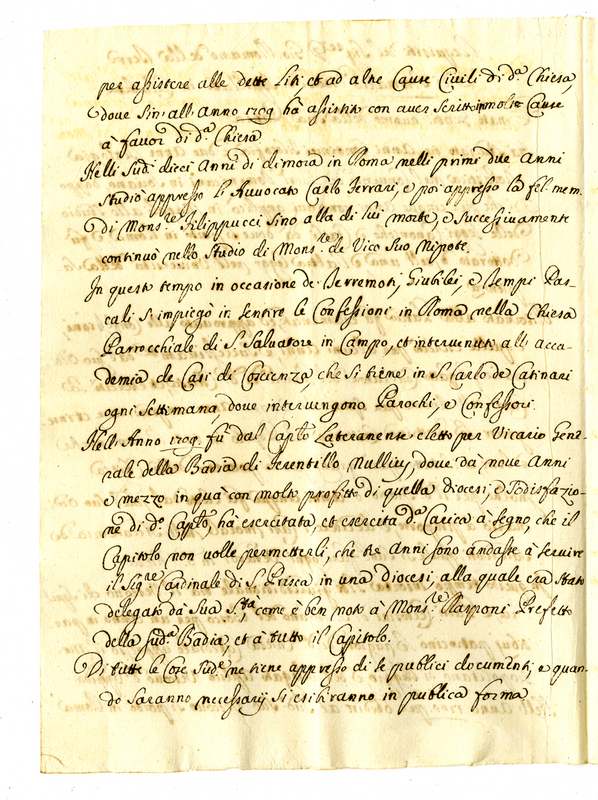 per assistere alle dette Liti, et ad altre Cause Civili di d.ª Chiesa,
dove sin' all' Anno 1709 hà assistito con aver scritto in molte Cause
à favor di d.ª Chiesa
Nelli Sud.i dieci Anni di dimora in Roma nelli primi due Anni
studiò appresso l'Avvocato Carlo Ferrari, e poi appresso la fel: mem.
di Mons.re Filippucci sino alla di lui morte, e successivamente
continuò nello studio di Mons.re de Vico suo Nipote.
In questo tempo in occasione de Terremoti, Giubilei, e Tempi Pas-
cali s'impiegò in sentire le Confessioni in Roma nella Chiesa
Parrocchiale di S. Salvatore in Campo, et intervenuto all' Acca-
demia de Casi di Coscienza, che si tiene in S. Carlo de Catinari
ogni settimana dove intervengono Parochi, e Confessori.
Nell' Anno 1709 fù dal Cap.lo Lateranense eletto per Vicario Gene-
rale della Badia di Ferentillo Nullius, dove da nove Anni
e mezzo in quà con molto profitto di quella diocesi, e sodisfazio-
ne di d.º Cap.lo, hà esercitata, et esercita d.ª Carica à segno, che il
Capitolo non volle permetterli, che tre Anni sono andasse à servire
il Sig.re Cardinale di S. Prisca in una diocesi, alla quale era stato
delegato da Sua S.tà, come è ben noto à Mons.re Rasponi Prefetto
della sud.ª Badia, et à tutto il Capitolo.
Di tutte le Cose Sud.e ne tiene appresso di se publici documenti, e quan-
do saranno necessarij si esibiranno in publica forma